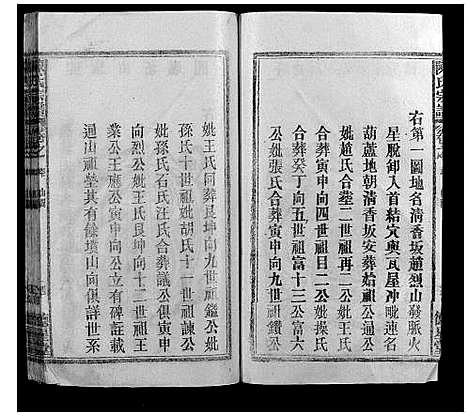 右第一圖地名清香坂趙烈山發脈火
星脫卸人首結寅與瓦屋冲毗連名
葫蘆地朝清香坂安葬始祖公遍公
妣趙氏合塋二世祖再二公妣王氏
合葬寅申向四世祖目二公妣操氏
合葬癸丁向五世祖富十三公富六
公妣張氏合葬寅申向九世祖
妣王氏同葬艮坤向九世祖鑑公妣
孫氏十世祖妣胡氏十一世祖諫公
妣孫氏石氏汪氏合葬議公寅申
向烈公妣王氏艮坤向十二世祖王
業公王應公寅申向公立有碑証載
週山祖塋其有餘墳山向俱詳世系